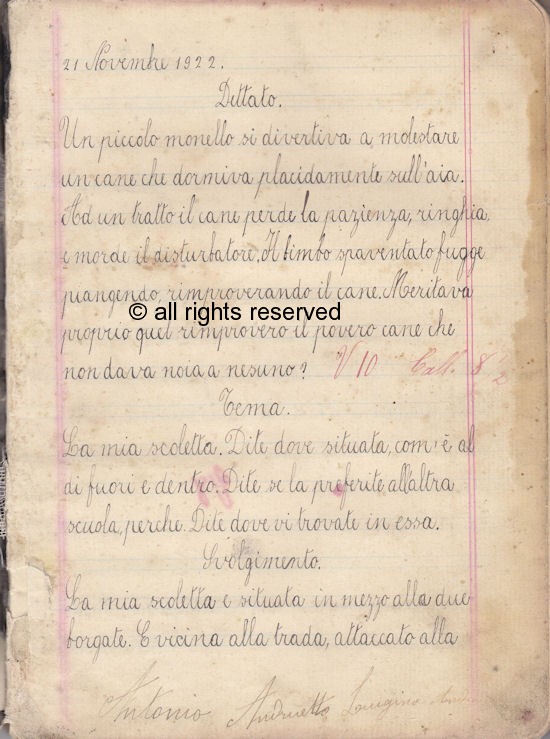 21 Novembre 1922.
Dettato.
Un piccolo monello si divertiva a, molestare
un cane che dormiva placidamente sull'aia.
Ad un tratto il cane perde la pazienza, ringhia,
e morde il disturbatore. Il bimbo spaventato fugge
piangendo, rimproverando il cane. Meritava
© all rights reserved
proprio quel rimprovero il povero cane che
non dava noia a nesuno? V 10 Call. 8 1/2
Tema.
La mia scoletta. Dite, dove situata, com'è al
di fuori e dentro. Dite se la preferite all'altra
scuola, perche. Dite dove vi trovate in essa.
Svolgimento.
La mia scoletta e situata in mezzo alla due
borgate. E vicina alla trada, attaccato alla
Antonio Andruetto Luigino